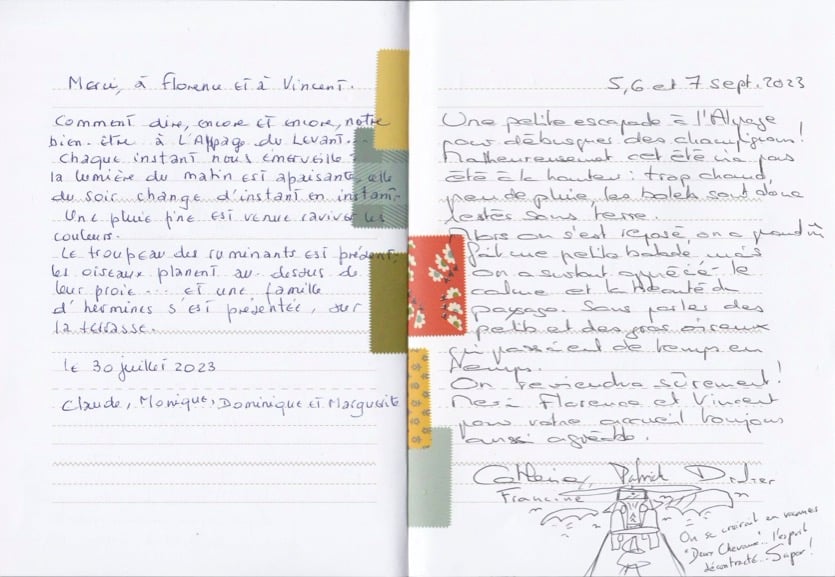 Merci, à Florence et à Vincent.
Comment dire, encore et encore, notre
bien-être à l'Alpage du Levant...
Chaque instant nous émerveille :
la lumière du matin est apaisante, elle
du soir change d'instant en instant.
Une pluie fine est venue raviver les
couleurs.
Le troupeau des ruminants est présent,
les oiseaux planent au-dessus de
leur proie... et une famille
d'hermines s'est présentée, sur
la terrasse.
le 30 juillet 2023
Claude, Monique, Dominique et Marguerite
5, 6 et 7 sept. 2023
Une petite escapade à l'Alpage
pour débusquer des champignons!
Malheureusement cet été n'a pas
été à la hauteur : trop chaud,
peu de pluie, les bolets sont donc
restés sous terre.
Alors on s'est reposé, on a quand m
fait une petite balade, mais
on a surtout apprécié le
calme et la beauté du
paysage. Sans parler des
petits et des gros oiseaux
qui passaient de temps en
temps.
On reviendra sûrement!
Merci Florence et Vincent
pour votre accueil toujours
aussi agréable.
Catherine, Patrick Didier
Francine
On se croirait en vacances
"Deux Chevaux".. l'esprit
décontracté.. Super!